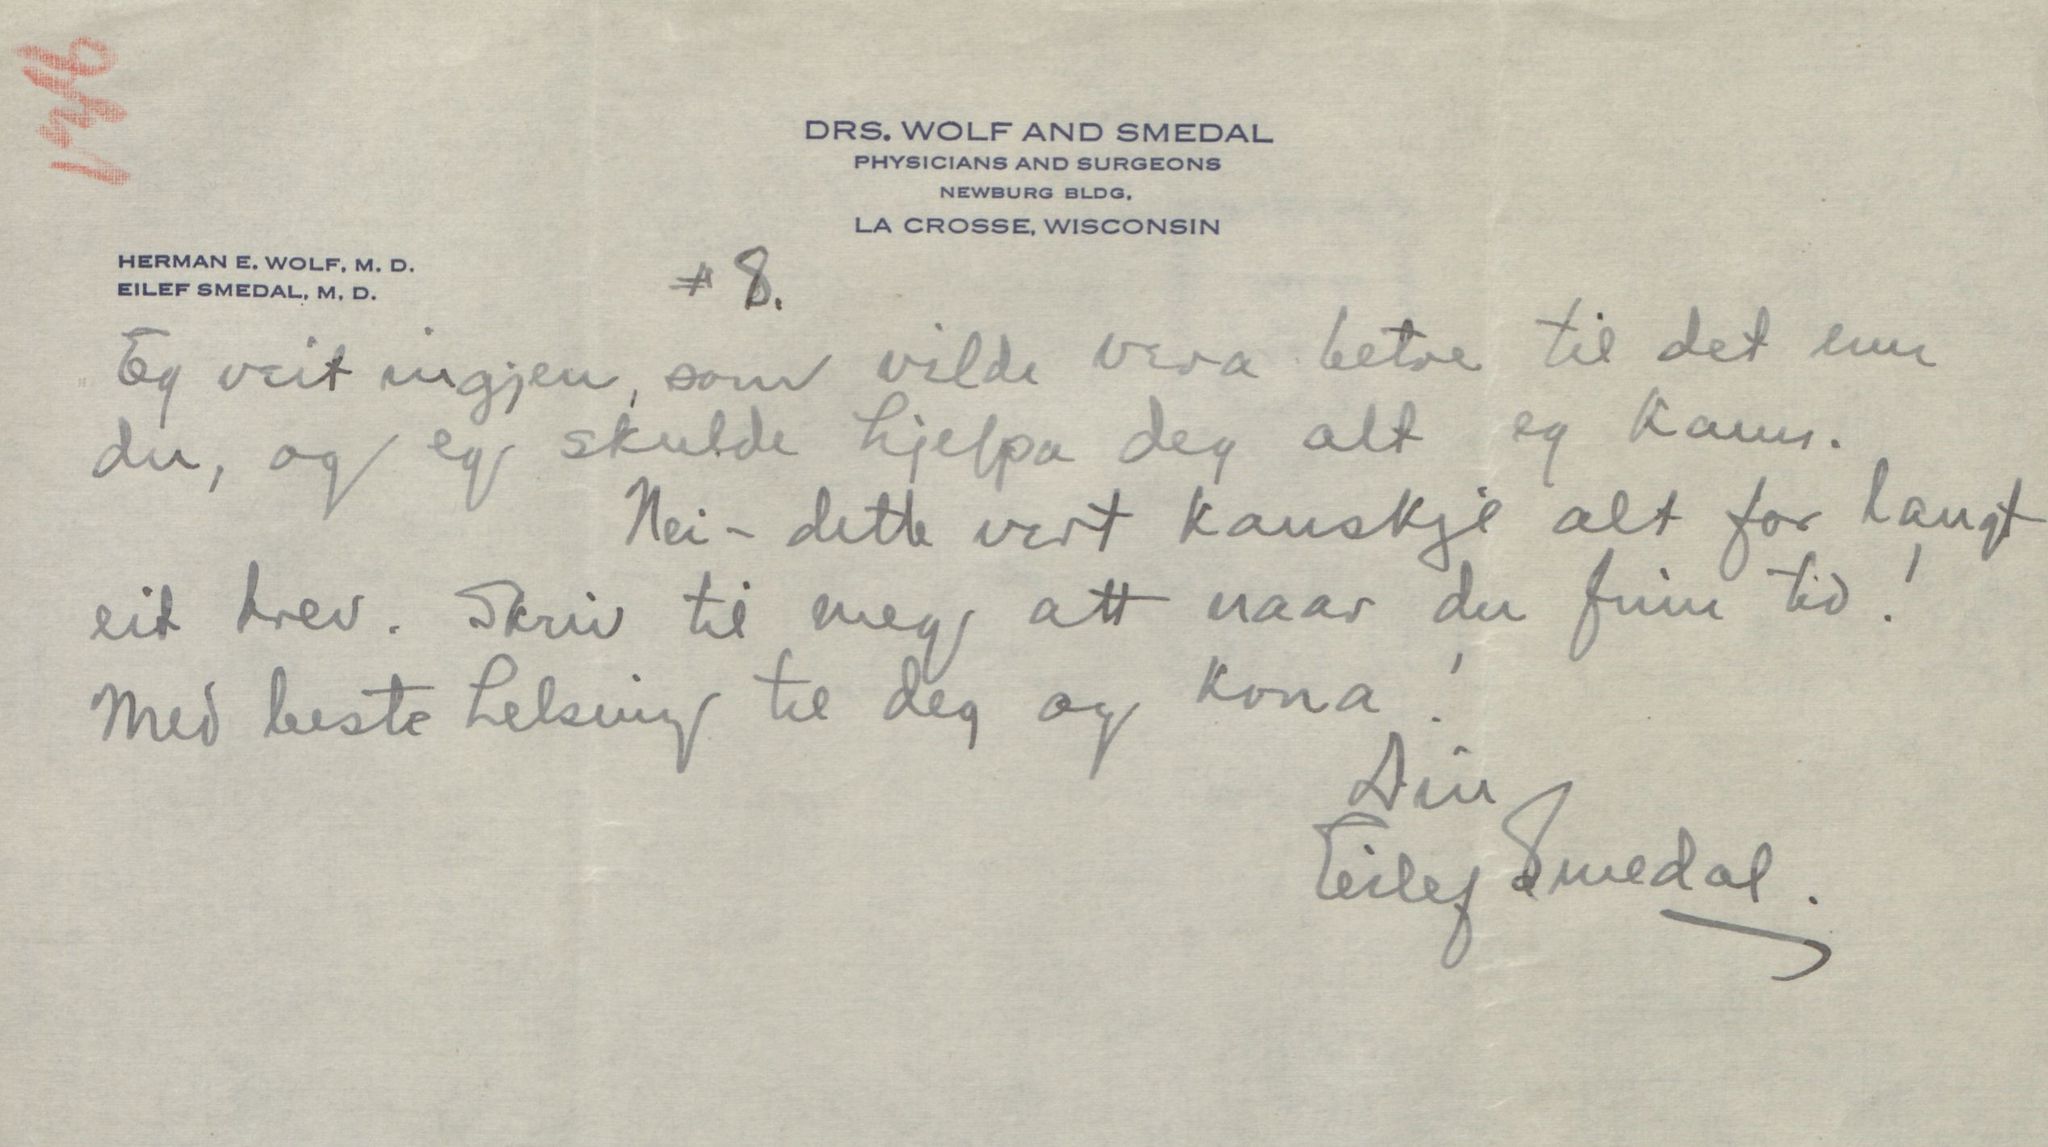 DRS. WOLF AND SMEDAL
PHYSICIANS AND SURGEONS
NEWBURG BLDG.
LA CROSSE, WISCONSIN
HERMAN E. WOLF, M. D.
EILEF SMEDAL, M. D.
#8.
Eg veit ingjen, som vilde vera betre til det enn
du, og eg skulde hjelpa deg alt eg kann.
Nei - dette vert kanskje alt for langt
eit brev. Skriv til meg att naar du finn tid!
Med beste helsing til deg og kona!
Din
Eilef Smedal.